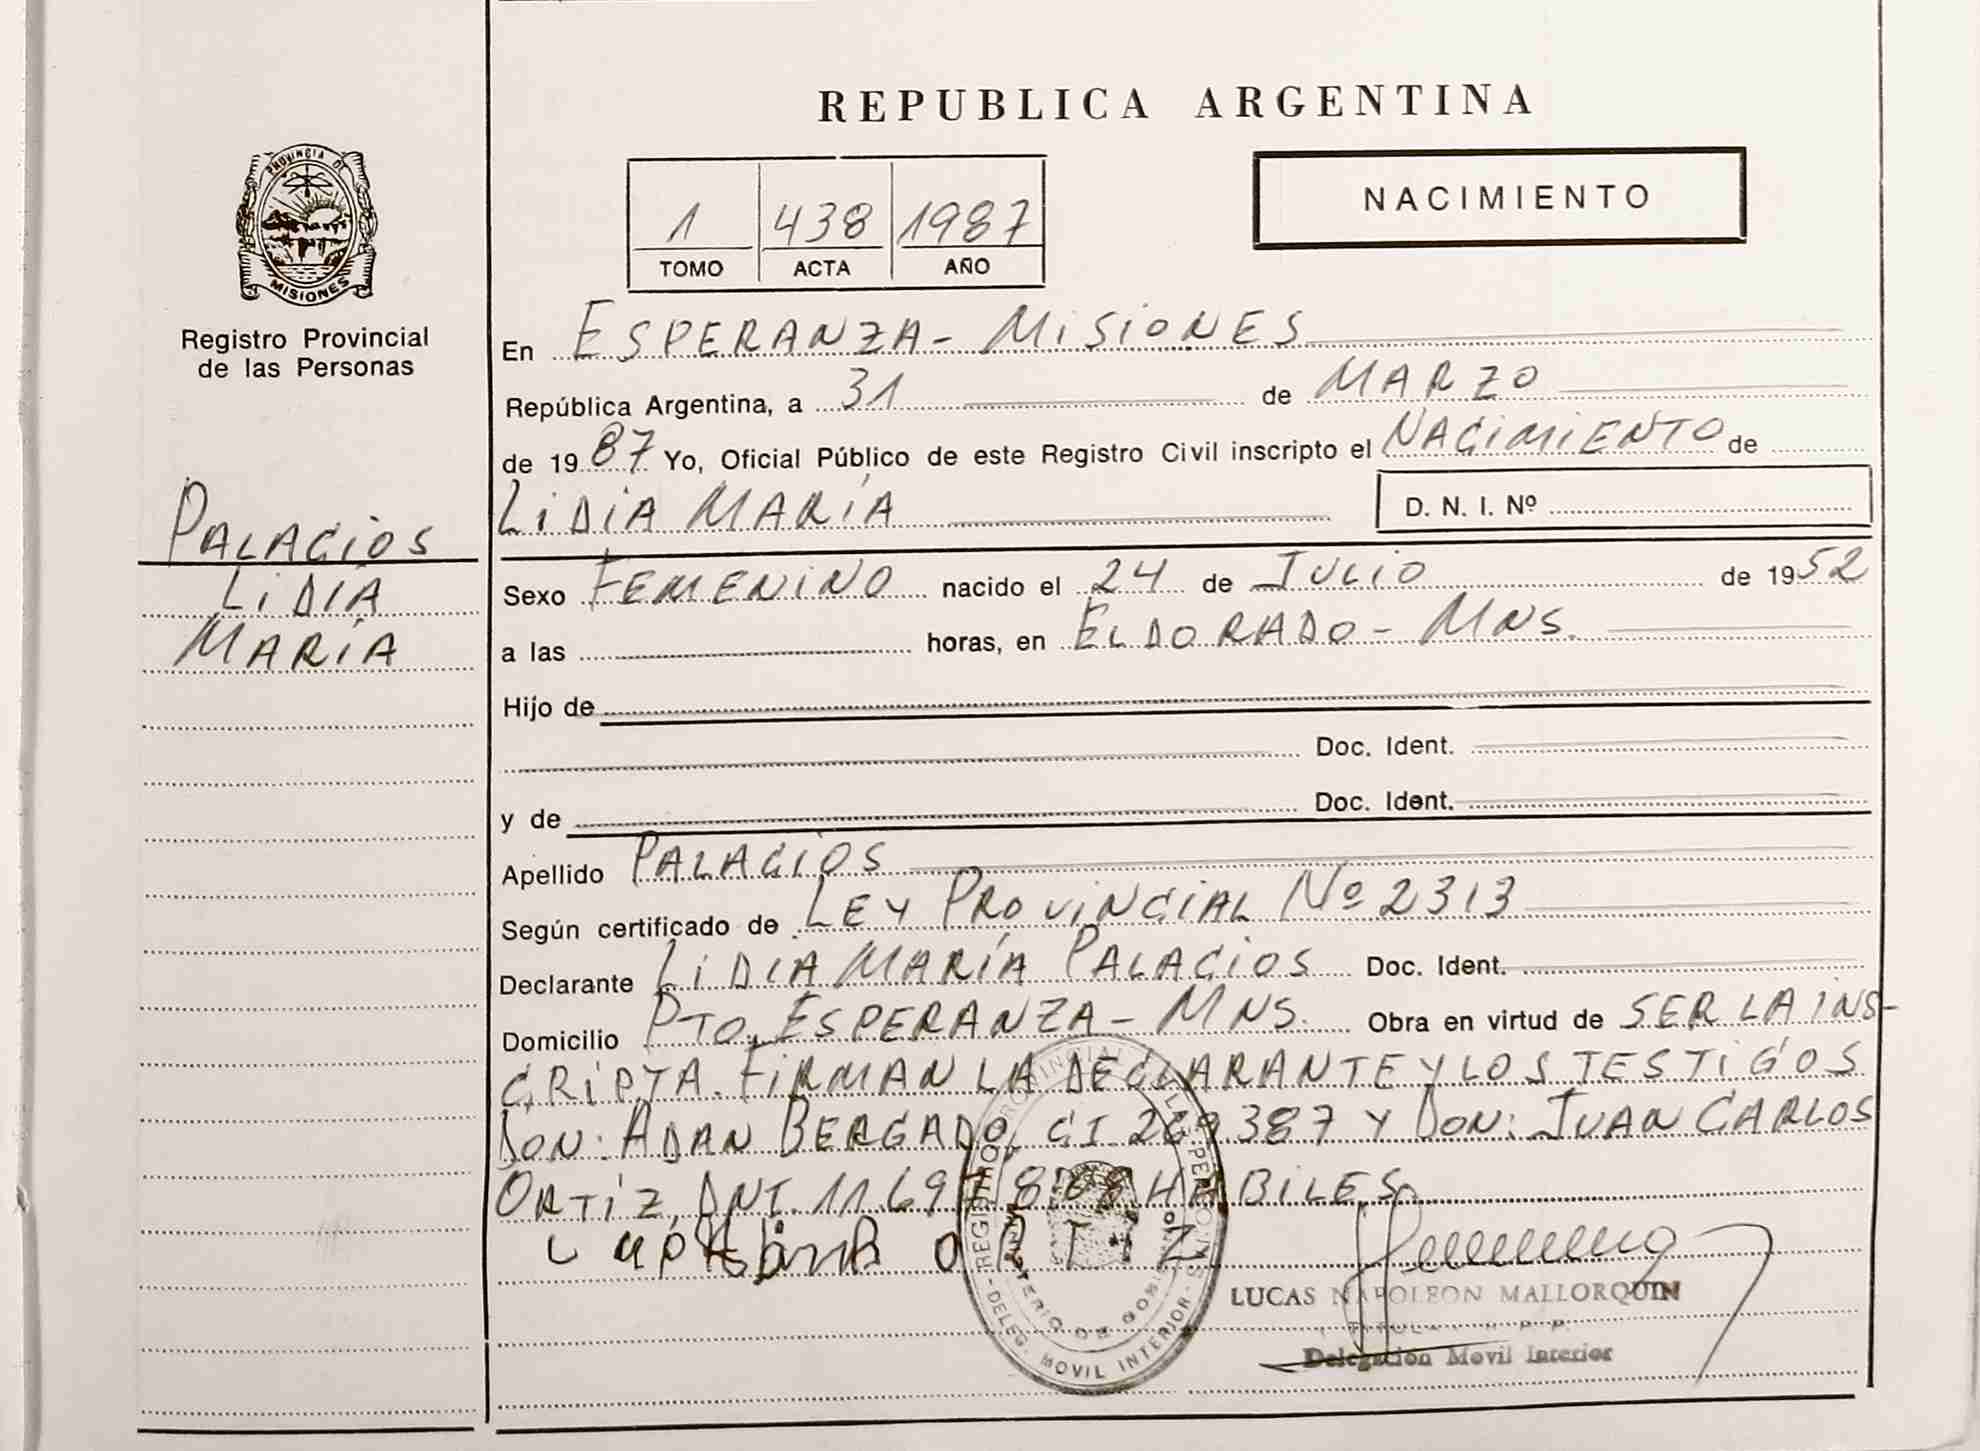 REPUBLICA ARGENTINA
PROVINCIA DE
MISIONES
Registro Provincial
de las Personas
1 438 1987
TOMO ACTA AÑO
NACIMIENTO
En ESPERANZA - MISIONES
República Argentina, a 31 de MARZO
de 1987 Yo, Oficial Público de este Registro Civil inscripto el NACIMIENTO de
LIDIA MARÍA D. N. I. Nº
PALACIOS
LIDIA
MARÍA
Sexo FEMENINO nacido el 24 de JULIO de 1952
a las horas, en ELDORADO - MNS.
Hijo de
Doc. Ident.
y de Doc. Ident.
Apellido PALACIOS
Según certificado de LEY PROVINCIAL Nº 2313
Declarante LIDIA MARÍA PALACIOS Doc. Ident.
Domicilio PTO. ESPERANZA - MNS. Obra en virtud de SER LA INS-
CRIPTA. FIRMAN LA DECLARANTE Y LOS TESTIGOS
DON: ADAN BERGADO, CI 269.387 Y DON: JUAN CARLOS
ORTIZ, DNI. 11.697.808 HABILES
ORTIZ
LUCAS NAPOLEON MALLORQUIN
TITULAR R. P. P.
Delegación Movil Interior
REGISTRO PROVINCIAL DE LAS PERSONAS
MINISTERIO DE GOBIERNO
DELEG. MOVIL INTERIOR